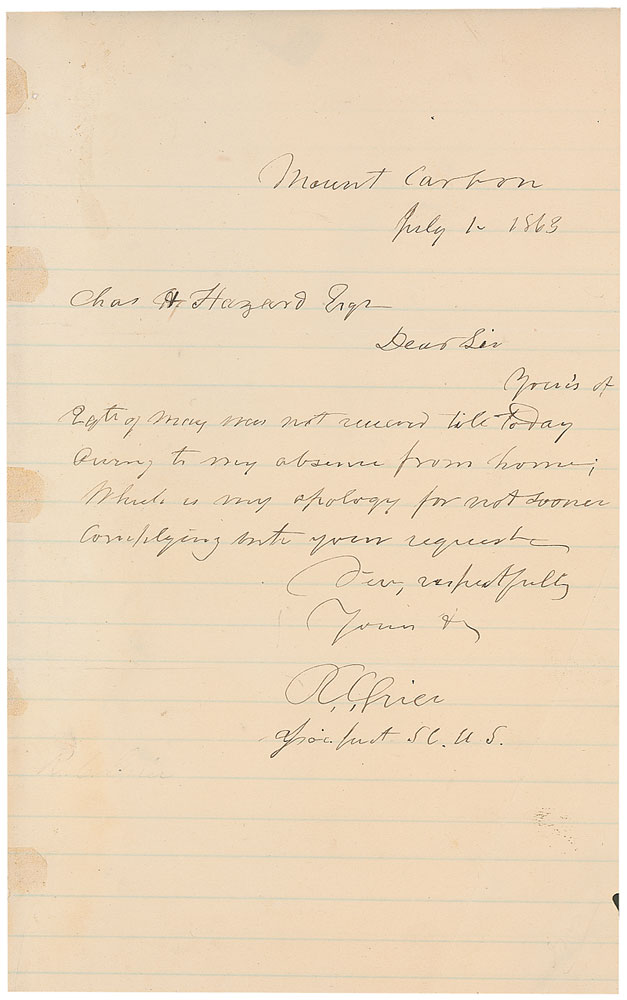 Mount Carbon
July 1 1863
Chas H Hazard Esqr
Dear Sir
Yours of
29th of May was not received till Today
owing to my absence from home;
Which is my apology for not sooner
Complying with your request
Very respectfully
Yours &c
R. C. Grier
Just S C. U S.